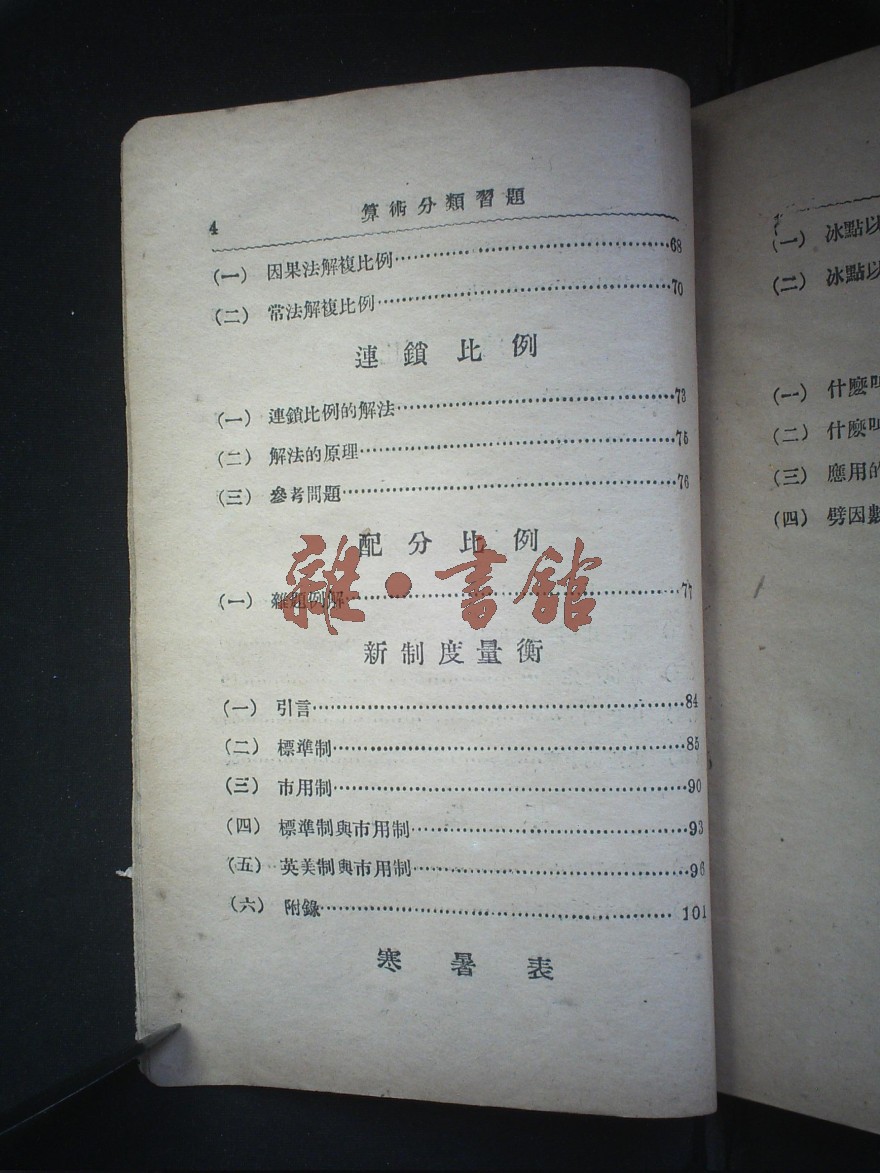 4
算術分類習題
(一) 因果法解複比例……68
(二) 常法解複比例……70
連鎖比例
(一) 連鎖比例的解法……73
(二) 解法的原理……75
(三) 參考問題……76
配分比例
(一) 雜題例解……77
雜·書館
新制度量衡
(一) 引言……84
(二) 標準制……85
(三) 市用制……90
(四) 標準制與市用制……93
(五) 英美制與市用制……96
(六) 附錄……101
寒暑表
(一) 冰點以
(二) 冰點以
(一) 什麼叫
(二) 什麼叫
(三) 應用的
(四) 劈因數